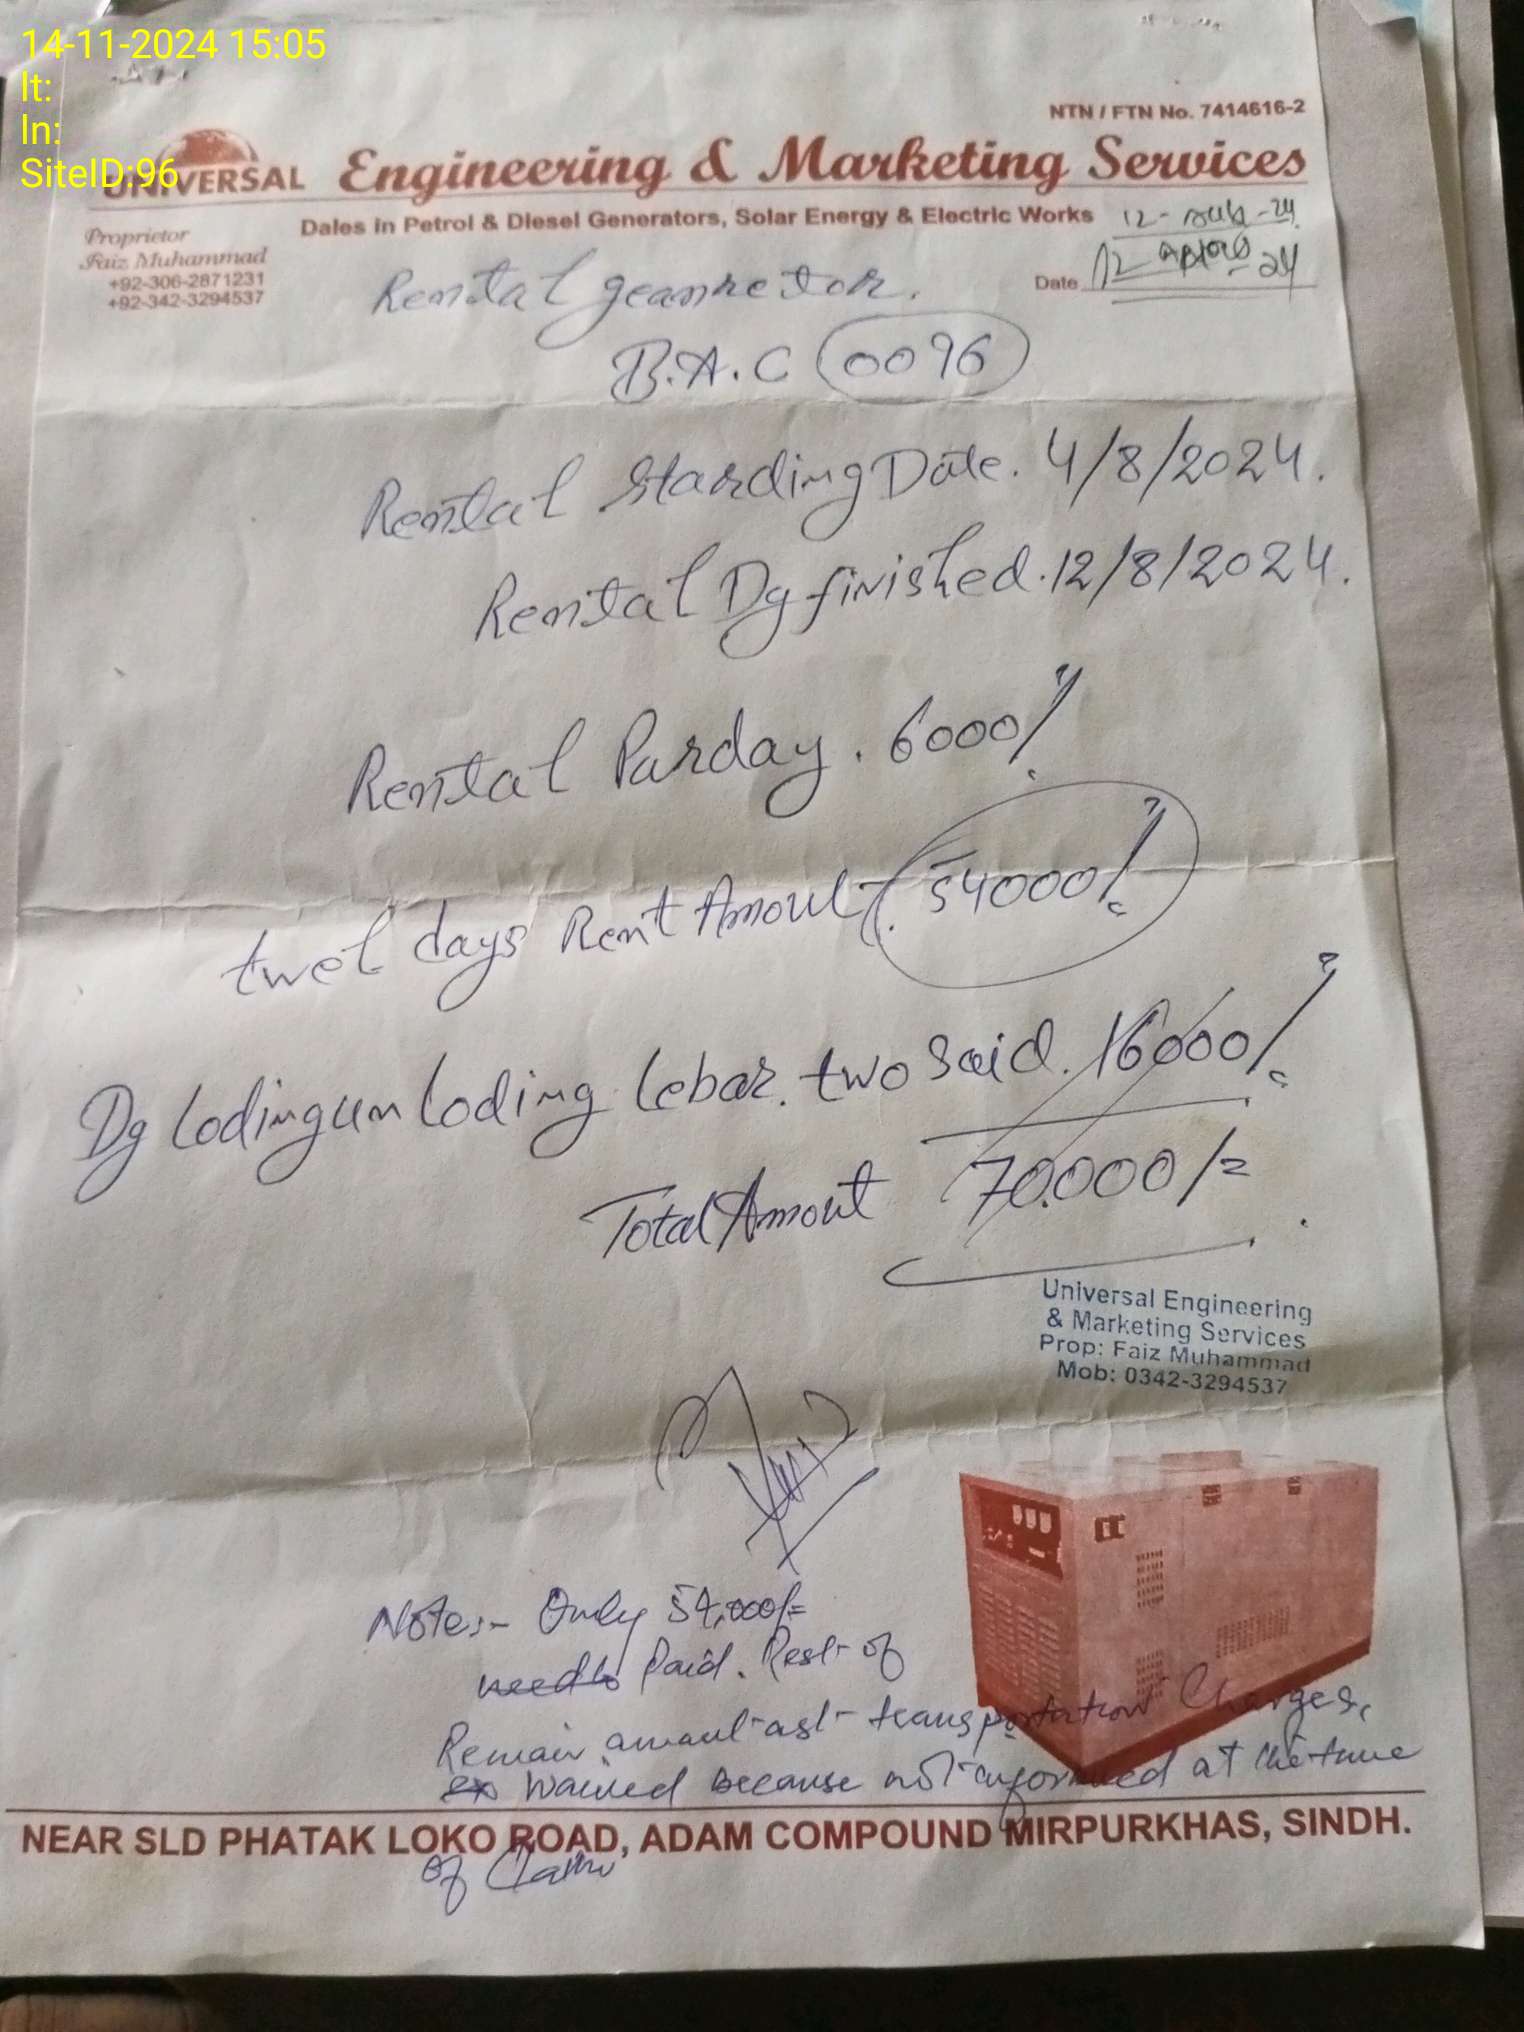 14-11-2024 15:05
lt:
ln:
SiteID:96
NTN / FTN No. 7414616-2
UNIVERSAL Engineering & Marketing Services
Dales in Petrol & Diesel Generators, Solar Energy & Electric Works
Proprietor
Faiz Muhammad
+92-306-2871231
+92-342-3294537
12- -24
Date 12 -24
Rental geanretor.
B.A.C 0096
Rental Starding Date. 4/8/2024.
Rental Dg finished. 12/8/2024.
Rental Parday. 6000/
twel days Rent Amout. 54000/
Dg loding un loding lebar. two Said. 16000/
Total Amout 70,000/=
Universal Engineering
& Marketing Services
Prop: Faiz Muhammad
Mob: 0342-3294537
Note:- Only 54,000/=
need to Paid. Rest of
Remain amount transportation Charges,
waived because not informed at the time
NEAR SLD PHATAK LOKO ROAD, ADAM COMPOUND MIRPURKHAS, SINDH.
of